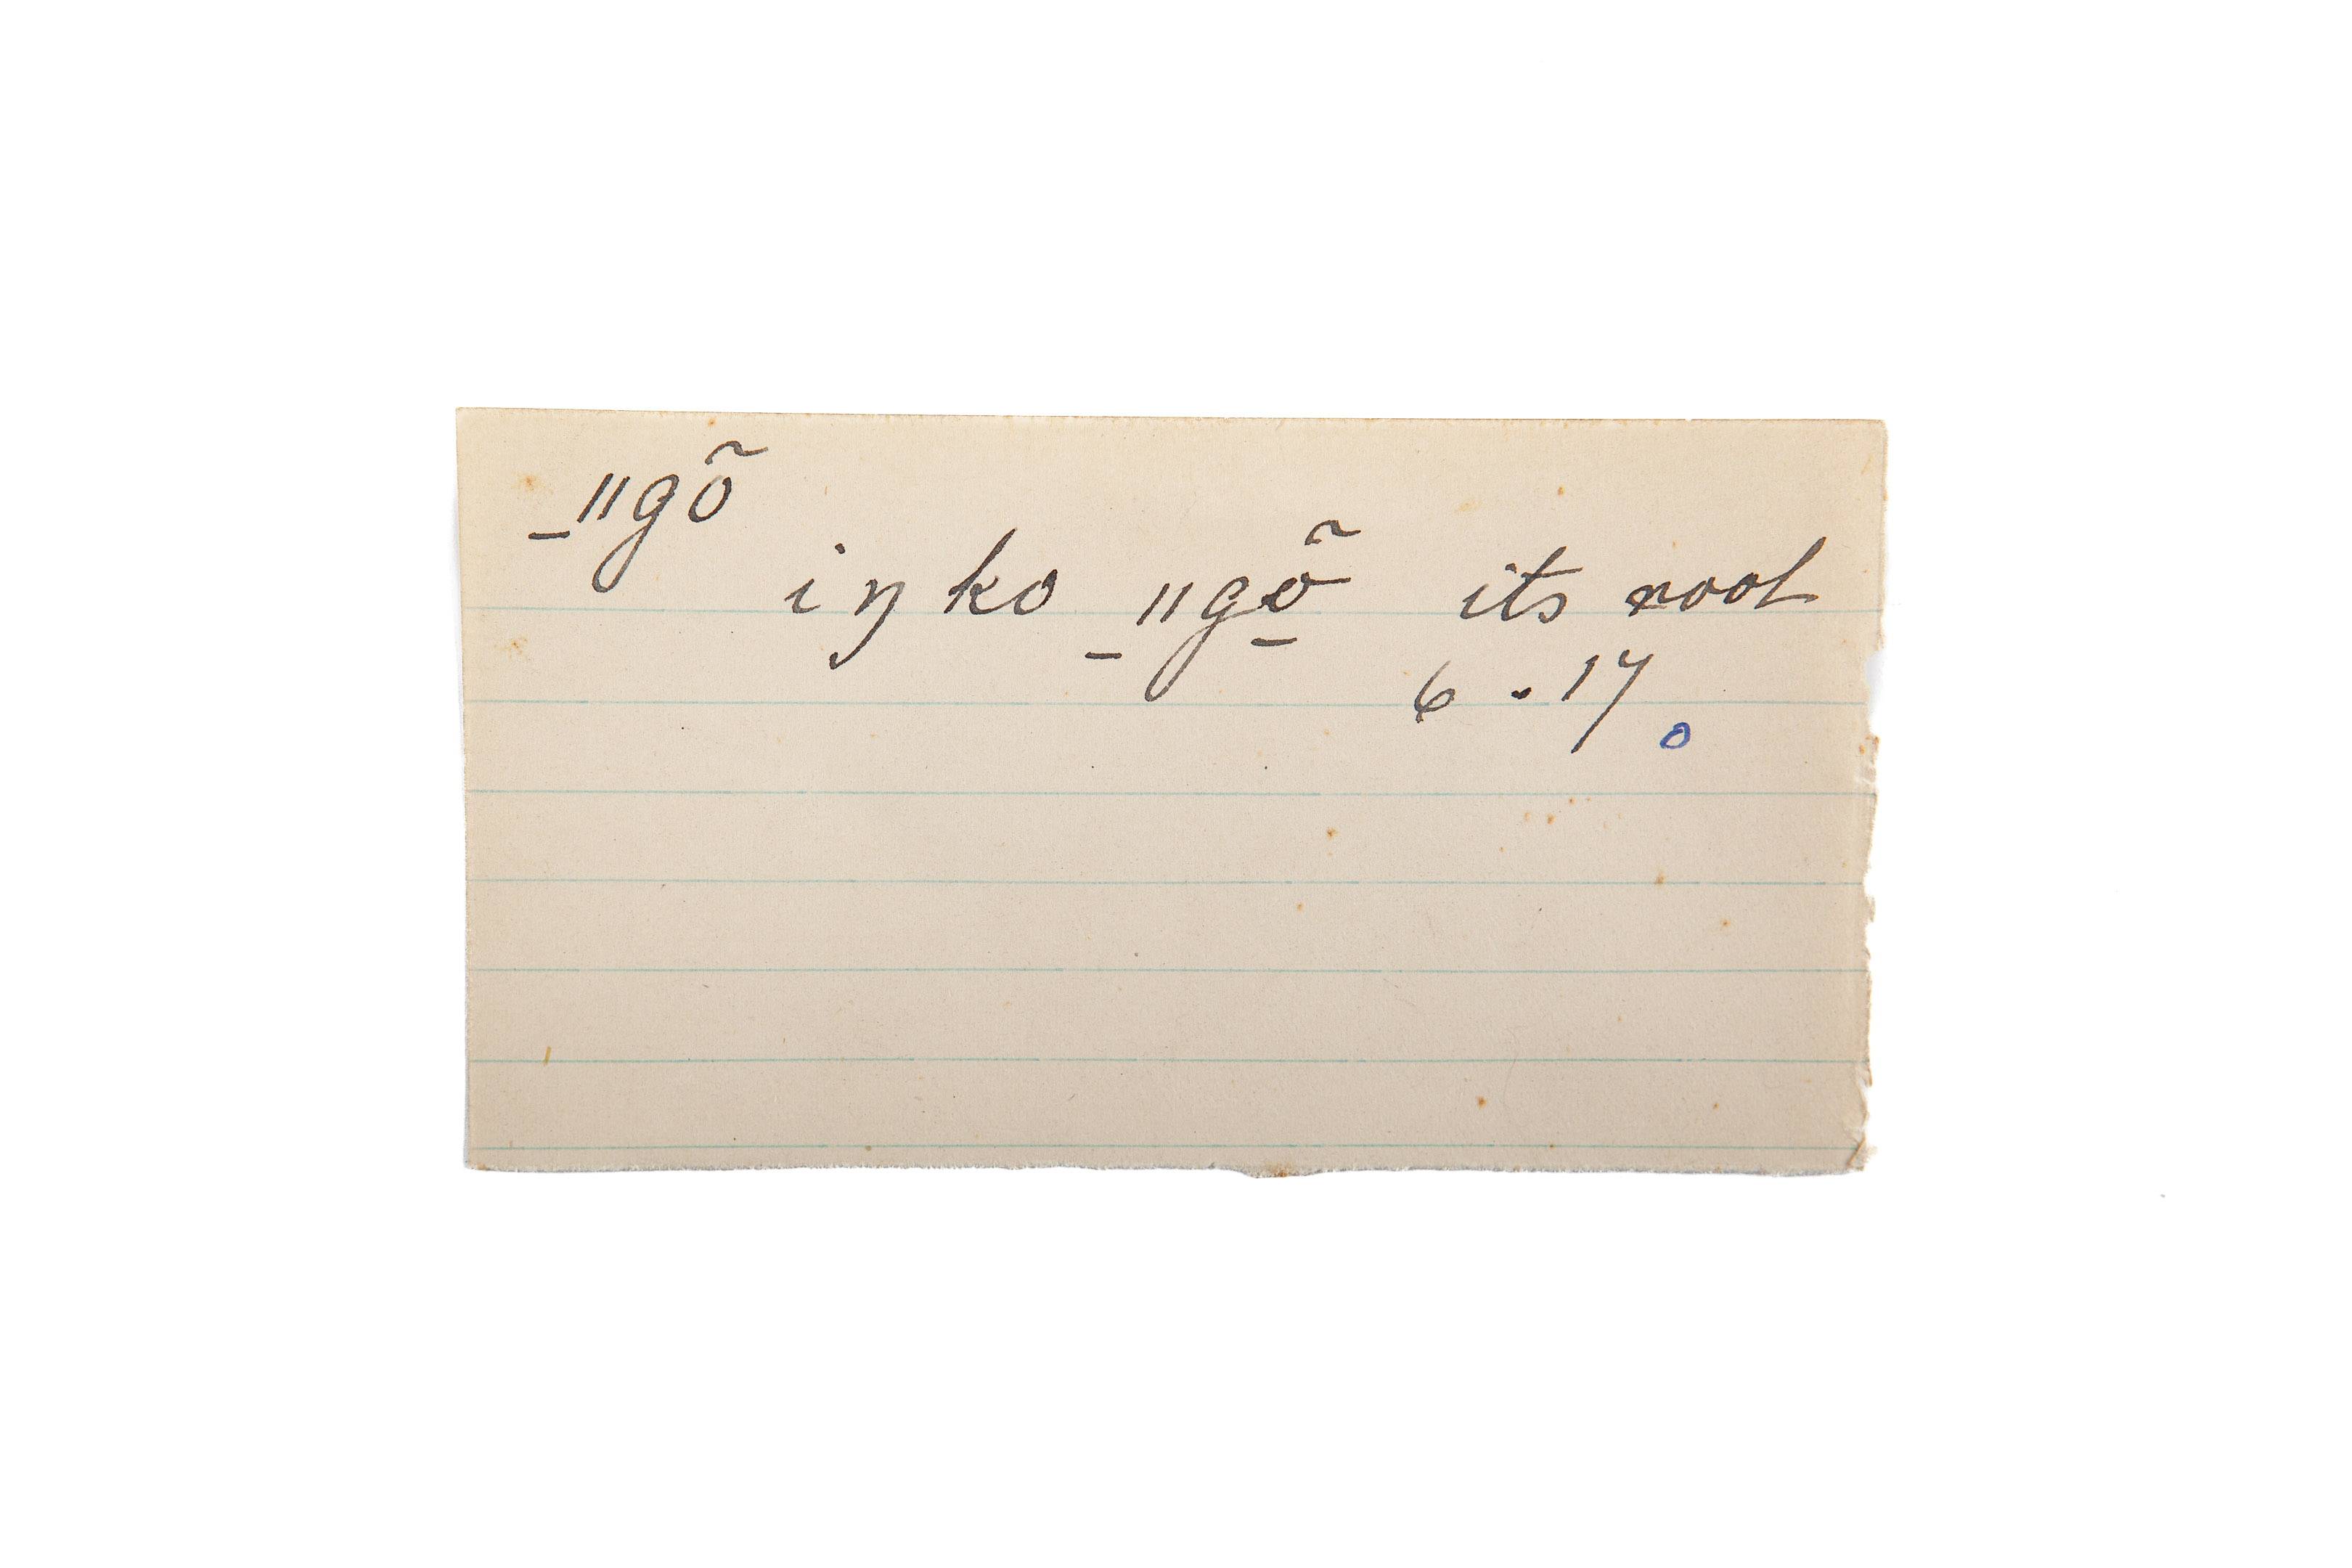 _ǁgõ
iŋ ko _ǁgõ̠ its root
6 . 17 o